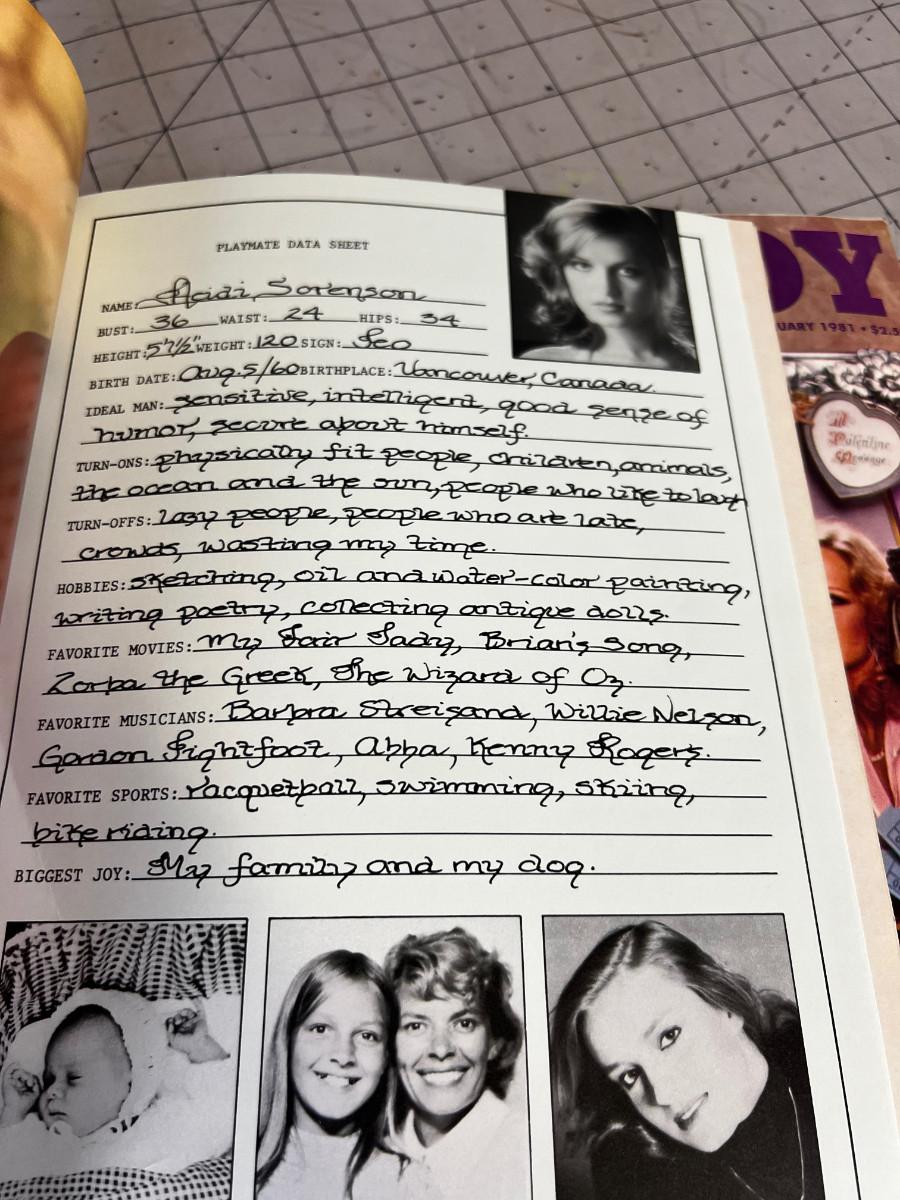 PLAYMATE DATA SHEET
NAME: Heidi Sorenson
BUST: 36 WAIST: 24 HIPS: 34
HEIGHT: 5'7½" WEIGHT: 120 SIGN: Leo
BIRTH DATE: Aug. 5/60 BIRTHPLACE: Vancouver, Canada.
IDEAL MAN: sensitive, intelligent, good sense of
humor, secure about himself.
TURN-ONS: physically fit people, children, animals,
the ocean and the sun, people who like to laugh
TURN-OFFS: lazy people, people who are late,
crowds, wasting my time.
HOBBIES: sketching, oil and water-color painting,
writing poetry, collecting antique dolls.
FAVORITE MOVIES: My Fair Lady, Brian's Song,
Zorba the Greek, The Wizard of Oz.
FAVORITE MUSICIANS: Barbra Streisand, Willie Nelson,
Gordon Lightfoot, Abba, Kenny Rogers.
FAVORITE SPORTS: racquetball, swimming, skiing,
bike riding.
BIGGEST JOY: My family and my dog.
OY
UARY 1981 • $2.5
Valentine